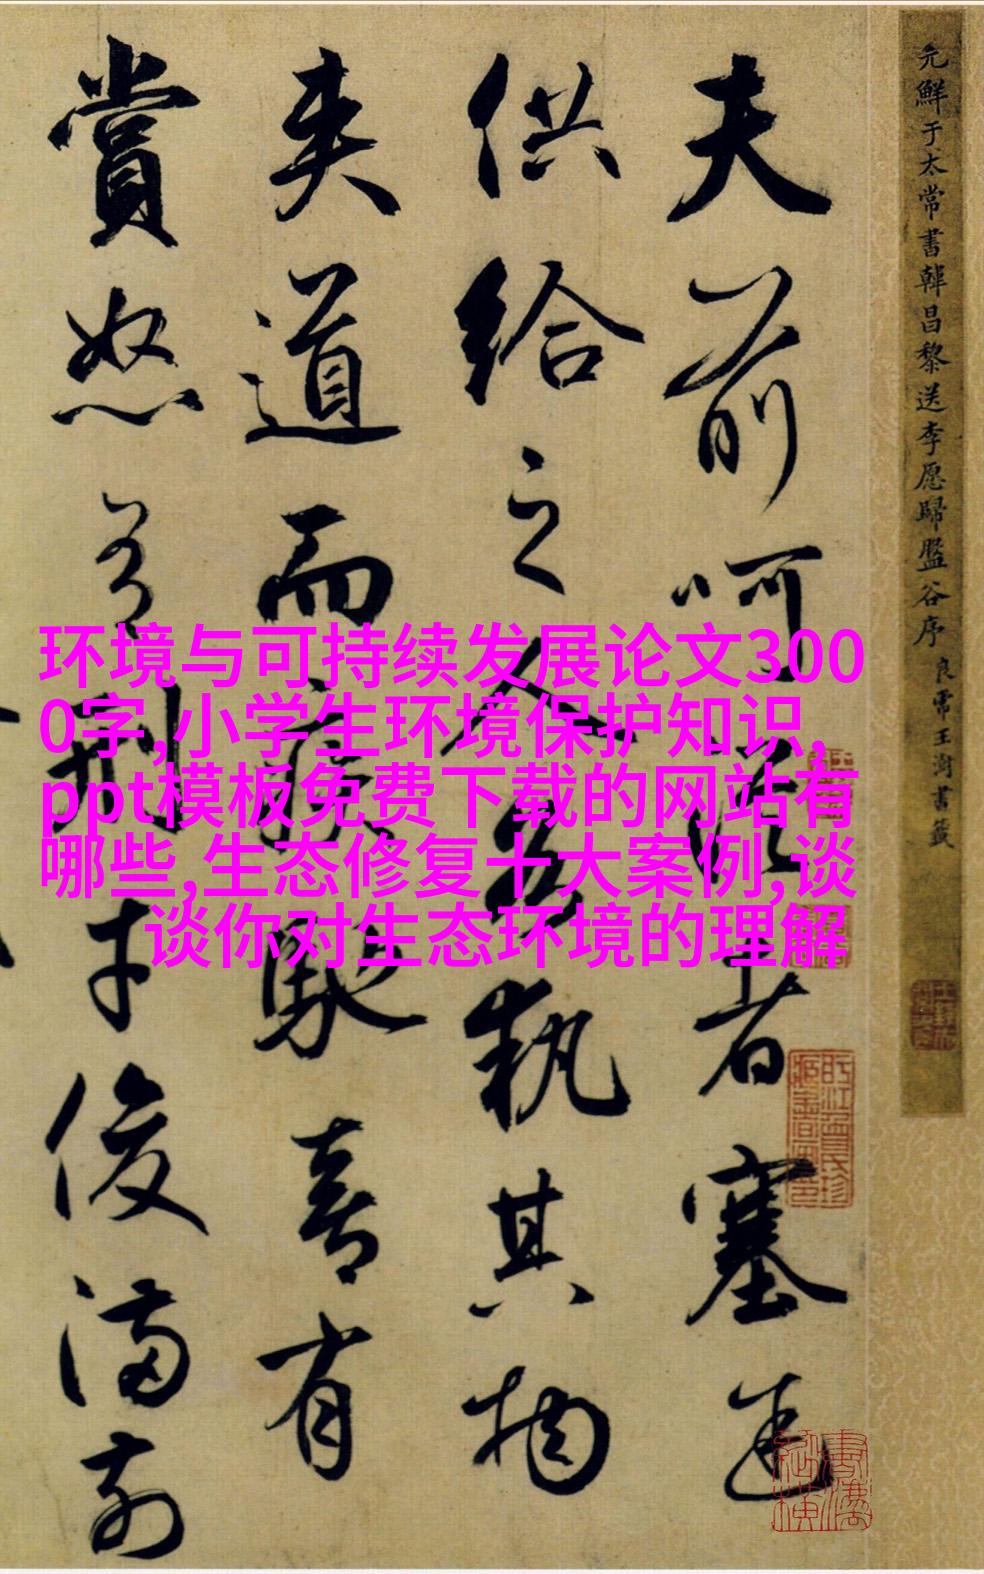 元鮮于太常書韓昌黎送李愿歸盤谷序
良常王澍書籤
夫前呵從者塞途
供給之人各執其物
夾道而疾馳喜有
賞怒有刑才俊滿前
环境与可持续发展论文300
0字,小学生环境保护知识,
ppt模板免费下载的网站有
哪些,生态修复十大案例,谈
谈你对生态环境的理解